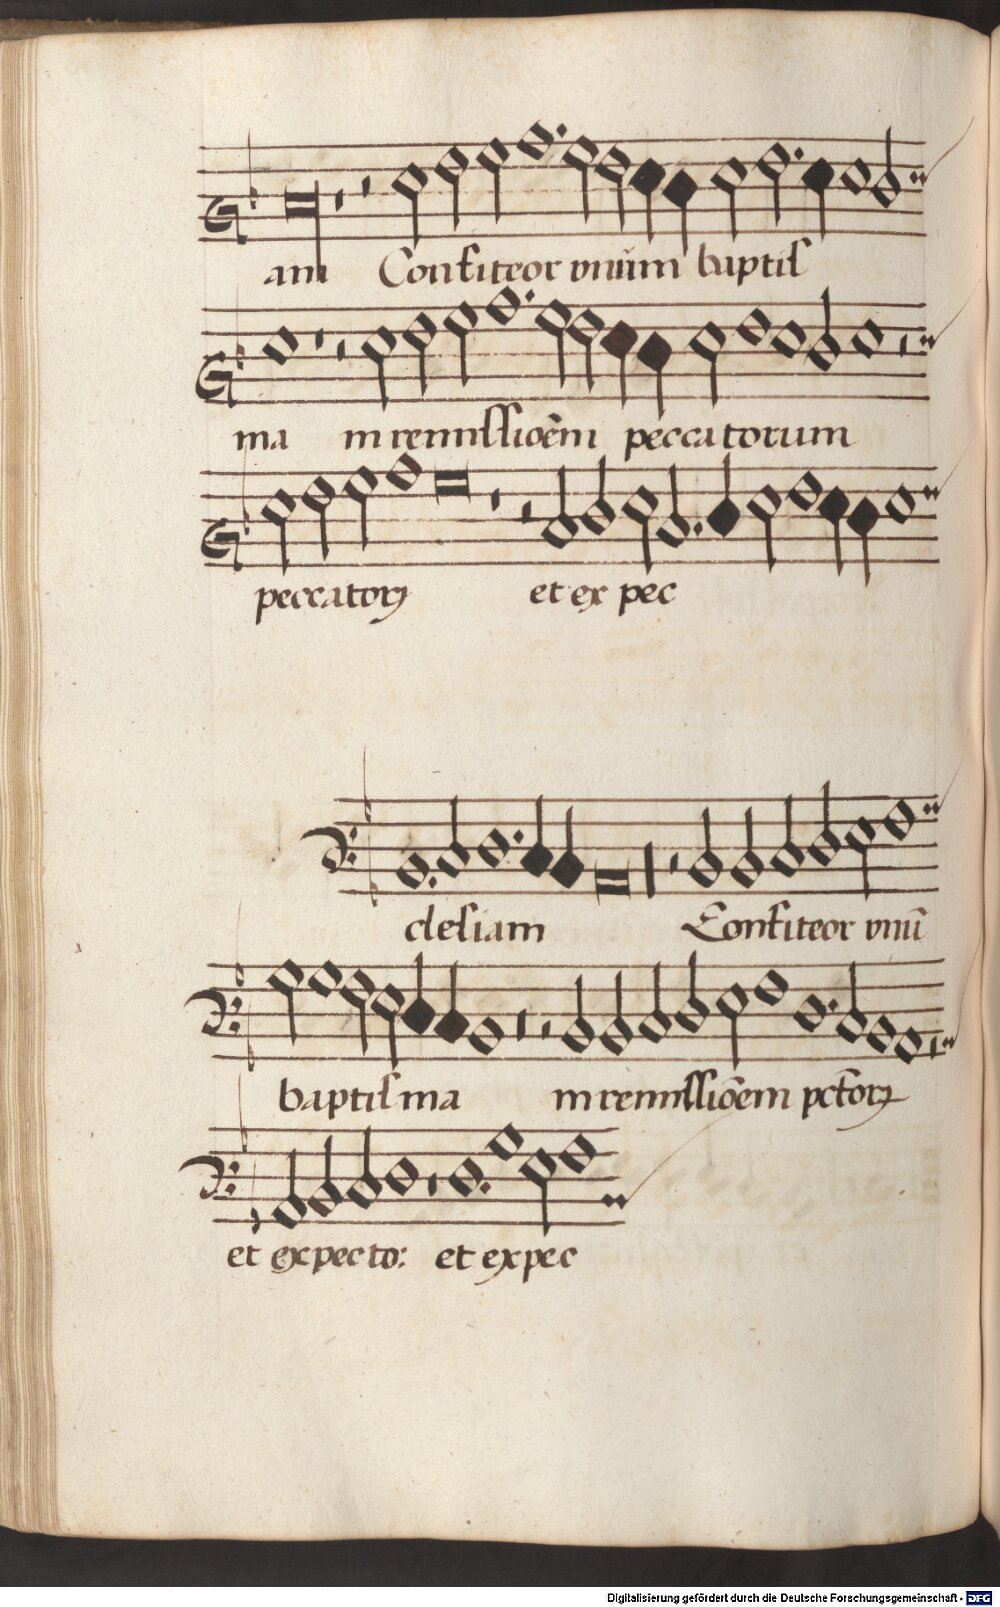 am Confiteor vnum baptis
ma in remissioēm peccatorum
peccatorꝝ et ex pec
clesiam Confiteor vnū
baptisma in remissiōem pctorꝝ
et expecto: et expec
Digitalisierung gefördert durch die Deutsche Forschungsgemeinschaft - DFG